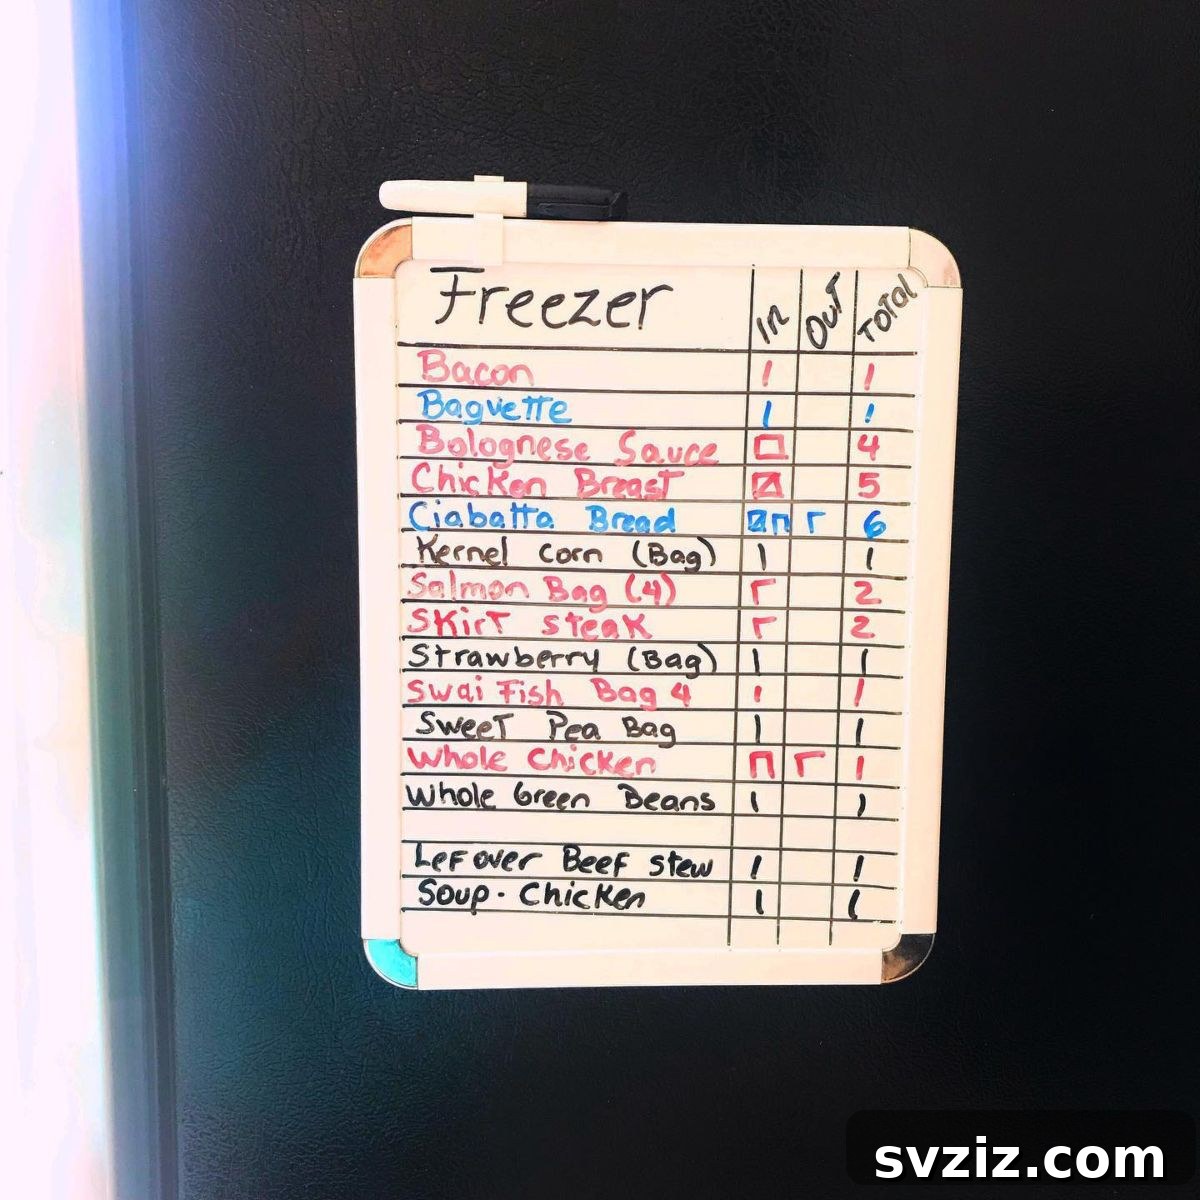 Freezer In Out Total
Bacon 1 1
Baguette 1 1
Bolognese Sauce 4
Chicken Breast 5
Ciabatta Bread 6
Kernel Corn (Bag) 1 1
Salmon Bag (4) 2
Skirt Steak 2
Strawberry (Bag) 1 1
Swai Fish Bag 4 1 1
Sweet Pea Bag 1 1
Whole Chicken 1
Whole Green Beans 1 1
Lefover Beef Stew 1 1
Soup - Chicken 1 1
svziz.com